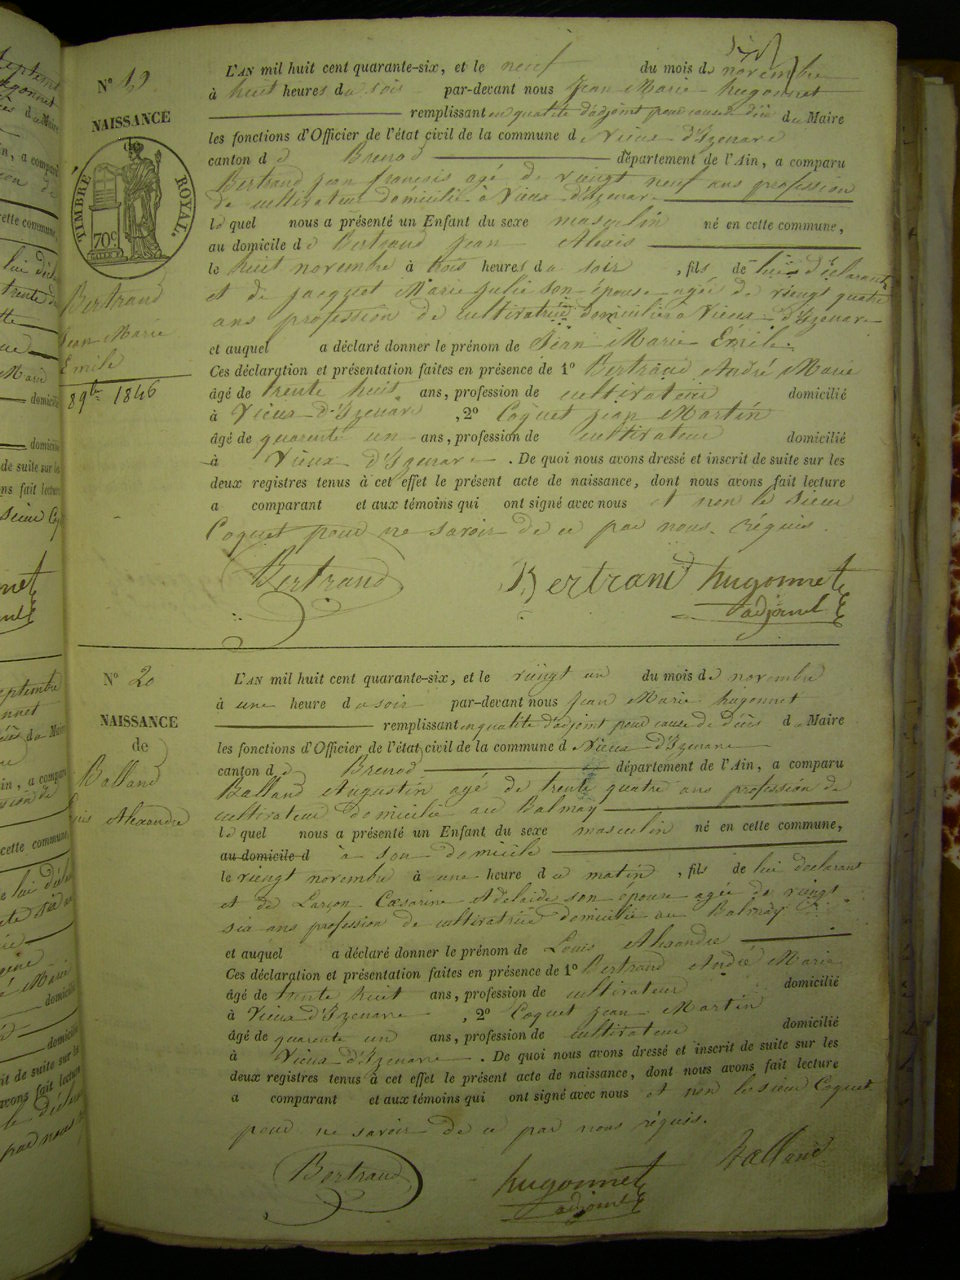 N° 19
NAISSANCE
TIMBRE ROYAL.
70c
Bertrand
Jean Marie
Emile
8 9bre 1846
L'AN mil huit cent quarante-six, et le neuf du mois de novembre
à huit heures du soir par-devant nous Jean Marie hugonnet
remplissant en qualité d'adjoint pour cause du Maire
les fonctions d'Officier de l'état civil de la commune de Vieux d'Izenave
canton d Brenod département de l'Ain, a comparu
Bertrand jean françois agé de viengt neuf ans profession
de cultivateur domicilié à Vieux d'Izenave
lequel nous a présenté un Enfant du sexe masculin né en cette commune,
au domicile de Bertrand jean Alexis
le huit novembre à trois heures du soir, fils de lui déclarant
et de jacquet Marie julie son épouse agée de viengt quatre
ans profession de cultivatrice domiciliée à Vieux d'Izenave
et auquel a déclaré donner le prénom de Jean Marie Emile.
Ces déclaration et présentation faites en présence de 1° Bertrand André Marie
âgé de trente huit ans, profession de cultivateur domicilié
à Vieux d'Izenave, 2° Coquet jean Martin
âgé de quarente un ans, profession de cultivateur domicilié
à Vieux d'Izenave. De quoi nous avons dressé et inscrit de suite sur les
deux registres tenus à cet effet le présent acte de naissance, dont nous avons fait lecture
a comparant et aux témoins qui ont signé avec nous et non le sieur
Coquet pour ne savoir de ce par nous réquis.
Bertrand Bertrand hugonnet
adjoint
N° 20
NAISSANCE
de
Balland
Louis Alexandre
L'AN mil huit cent quarante-six, et le viengt un du mois de novembre
à une heure du soir par-devant nous Jean Marie hugonnet
remplissant en qualité d'adjoint pour cause de décès du Maire
les fonctions d'Officier de l'état civil de la commune de Vieux d'Izenave
canton d Brenod département de l'Ain, a comparu
Balland Augustin agé de trente quatre ans profession de
cultivateur domicilié au Balmay
lequel nous a présenté un Enfant du sexe masculin né en cette commune,
au domicile d à son domicile
le viengt novembre à une heure du matin, fils de lui déclarant
et de Adelaide son épouse agée de viengt
six ans profession de cultivatrice domicilié au Balmay
et auquel a déclaré donner le prénom de Louis Alexandre
Ces déclaration et présentation faites en présence de 1° Bertrand André Marie
âgé de trente huit ans, profession de cultivateur domicilié
à Vieux d'Izenave, 2° Coquet jean Martin
âgé de quarente un ans, profession de cultivateur domicilié
à Vieux d'Izenave. De quoi nous avons dressé et inscrit de suite sur les
deux registres tenus à cet effet le présent acte de naissance, dont nous avons fait lecture
a comparant et aux témoins qui ont signé avec nous et non le sieur Coquet
pour ne savoir de ce par nous réquis.
Bertrand hugonnet Balland
adjoint